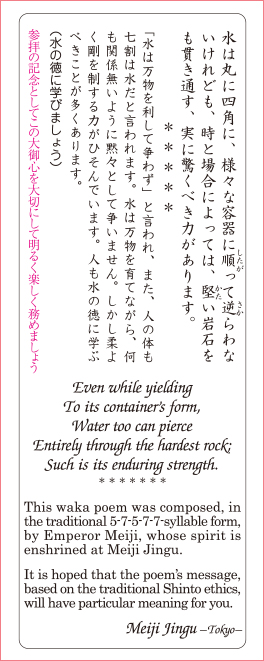 水は丸に四角に、様々な容器に順って逆らわな
いけれども、時と場合によっては、堅い岩石を
も貫き通す、実に驚くべき力があります。
＊＊＊＊＊
「水は万物を利して争わず」と言われ、また、人の体も
七割は水だと言われます。水は万物を育てながら、何
も関係無いように黙々として争いません。しかし柔よ
く剛を制する力がひそんでいます。人も水の徳に学ぶ
べきことが多くあります。
（水の徳に学びましょう）
参拝の記念としてこの大御心を大切にして明るく楽しく務めましょう
Even while yielding
To its container's form,
Water too can pierce
Entirely through the hardest rock:
Such is its enduring strength.
* * * * * * *
This waka poem was composed, in
the traditional 5-7-5-7-7-syllable form,
by Emperor Meiji, whose spirit is
enshrined at Meiji Jingu.
It is hoped that the poem's message,
based on the traditional Shinto ethics,
will have particular meaning for you.
Meiji Jingu –Tokyo–